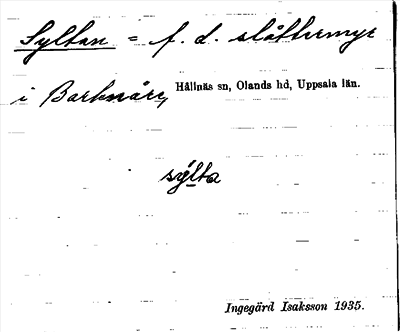 Syltan = f. d. slåttermyr
i Barknåre, Hållnäs sn, Olands hd, Uppsala län.
sylta
Ingegärd Isaksson 1935.